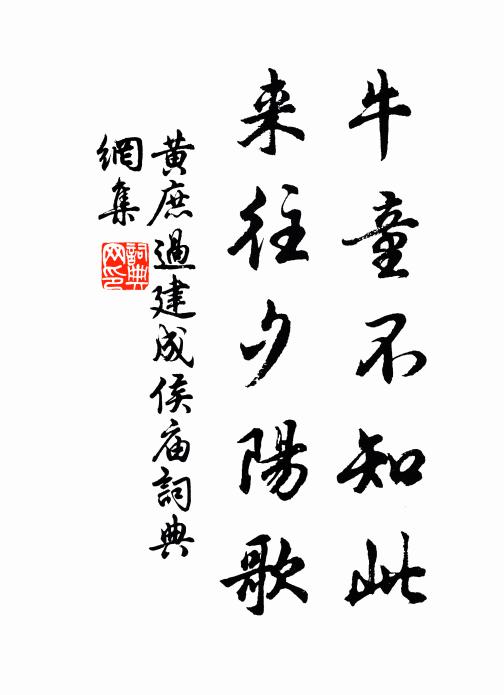 牛童不知此
来往夕陽歌
黄庶過建成侯庙詞典
網集
詞典
网印